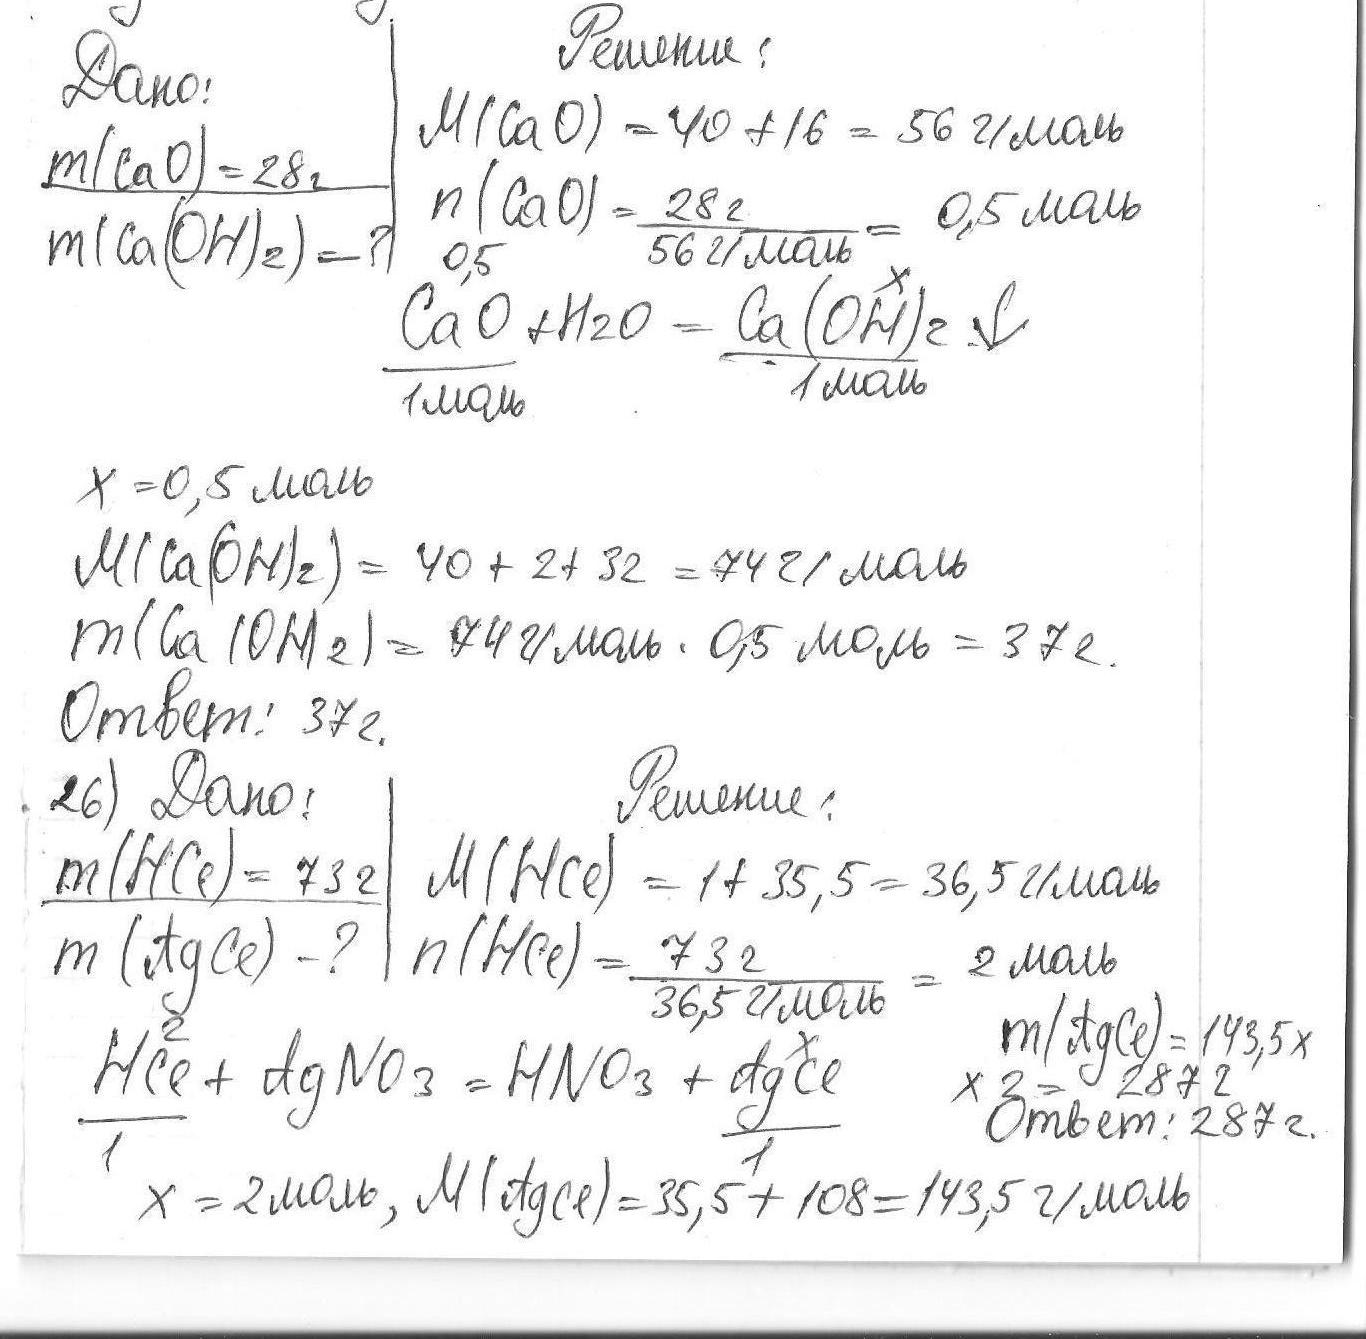 Дано:
m(CaO) = 28г
m(Ca(OH)2) = ?
Решение:
M(CaO) = 40 + 16 = 56 г/моль
n(CaO) = 28г / 56 г/моль = 0,5 моль
0,5 x
CaO + H2O = Ca(OH)2 ↓
1моль 1моль
x = 0,5 моль
M(Ca(OH)2) = 40 + 2 + 32 = 74 г/моль
m(Ca(OH)2) = 74 г/моль · 0,5 моль = 37г.
Ответ: 37г.
26) Дано:
m(HCl) = 73г
m(AgCl) - ?
Решение:
M(HCl) = 1 + 35,5 = 36,5 г/моль
n(HCl) = 73г / 36,5 г/моль = 2 моль
2 x
HCl + AgNO3 = HNO3 + AgCl
1 1
x = 2моль, M(AgCl) = 35,5 + 108 = 143,5 г/моль
m(AgCl) = 143,5 x
x 2 = 287г
Ответ: 287г.